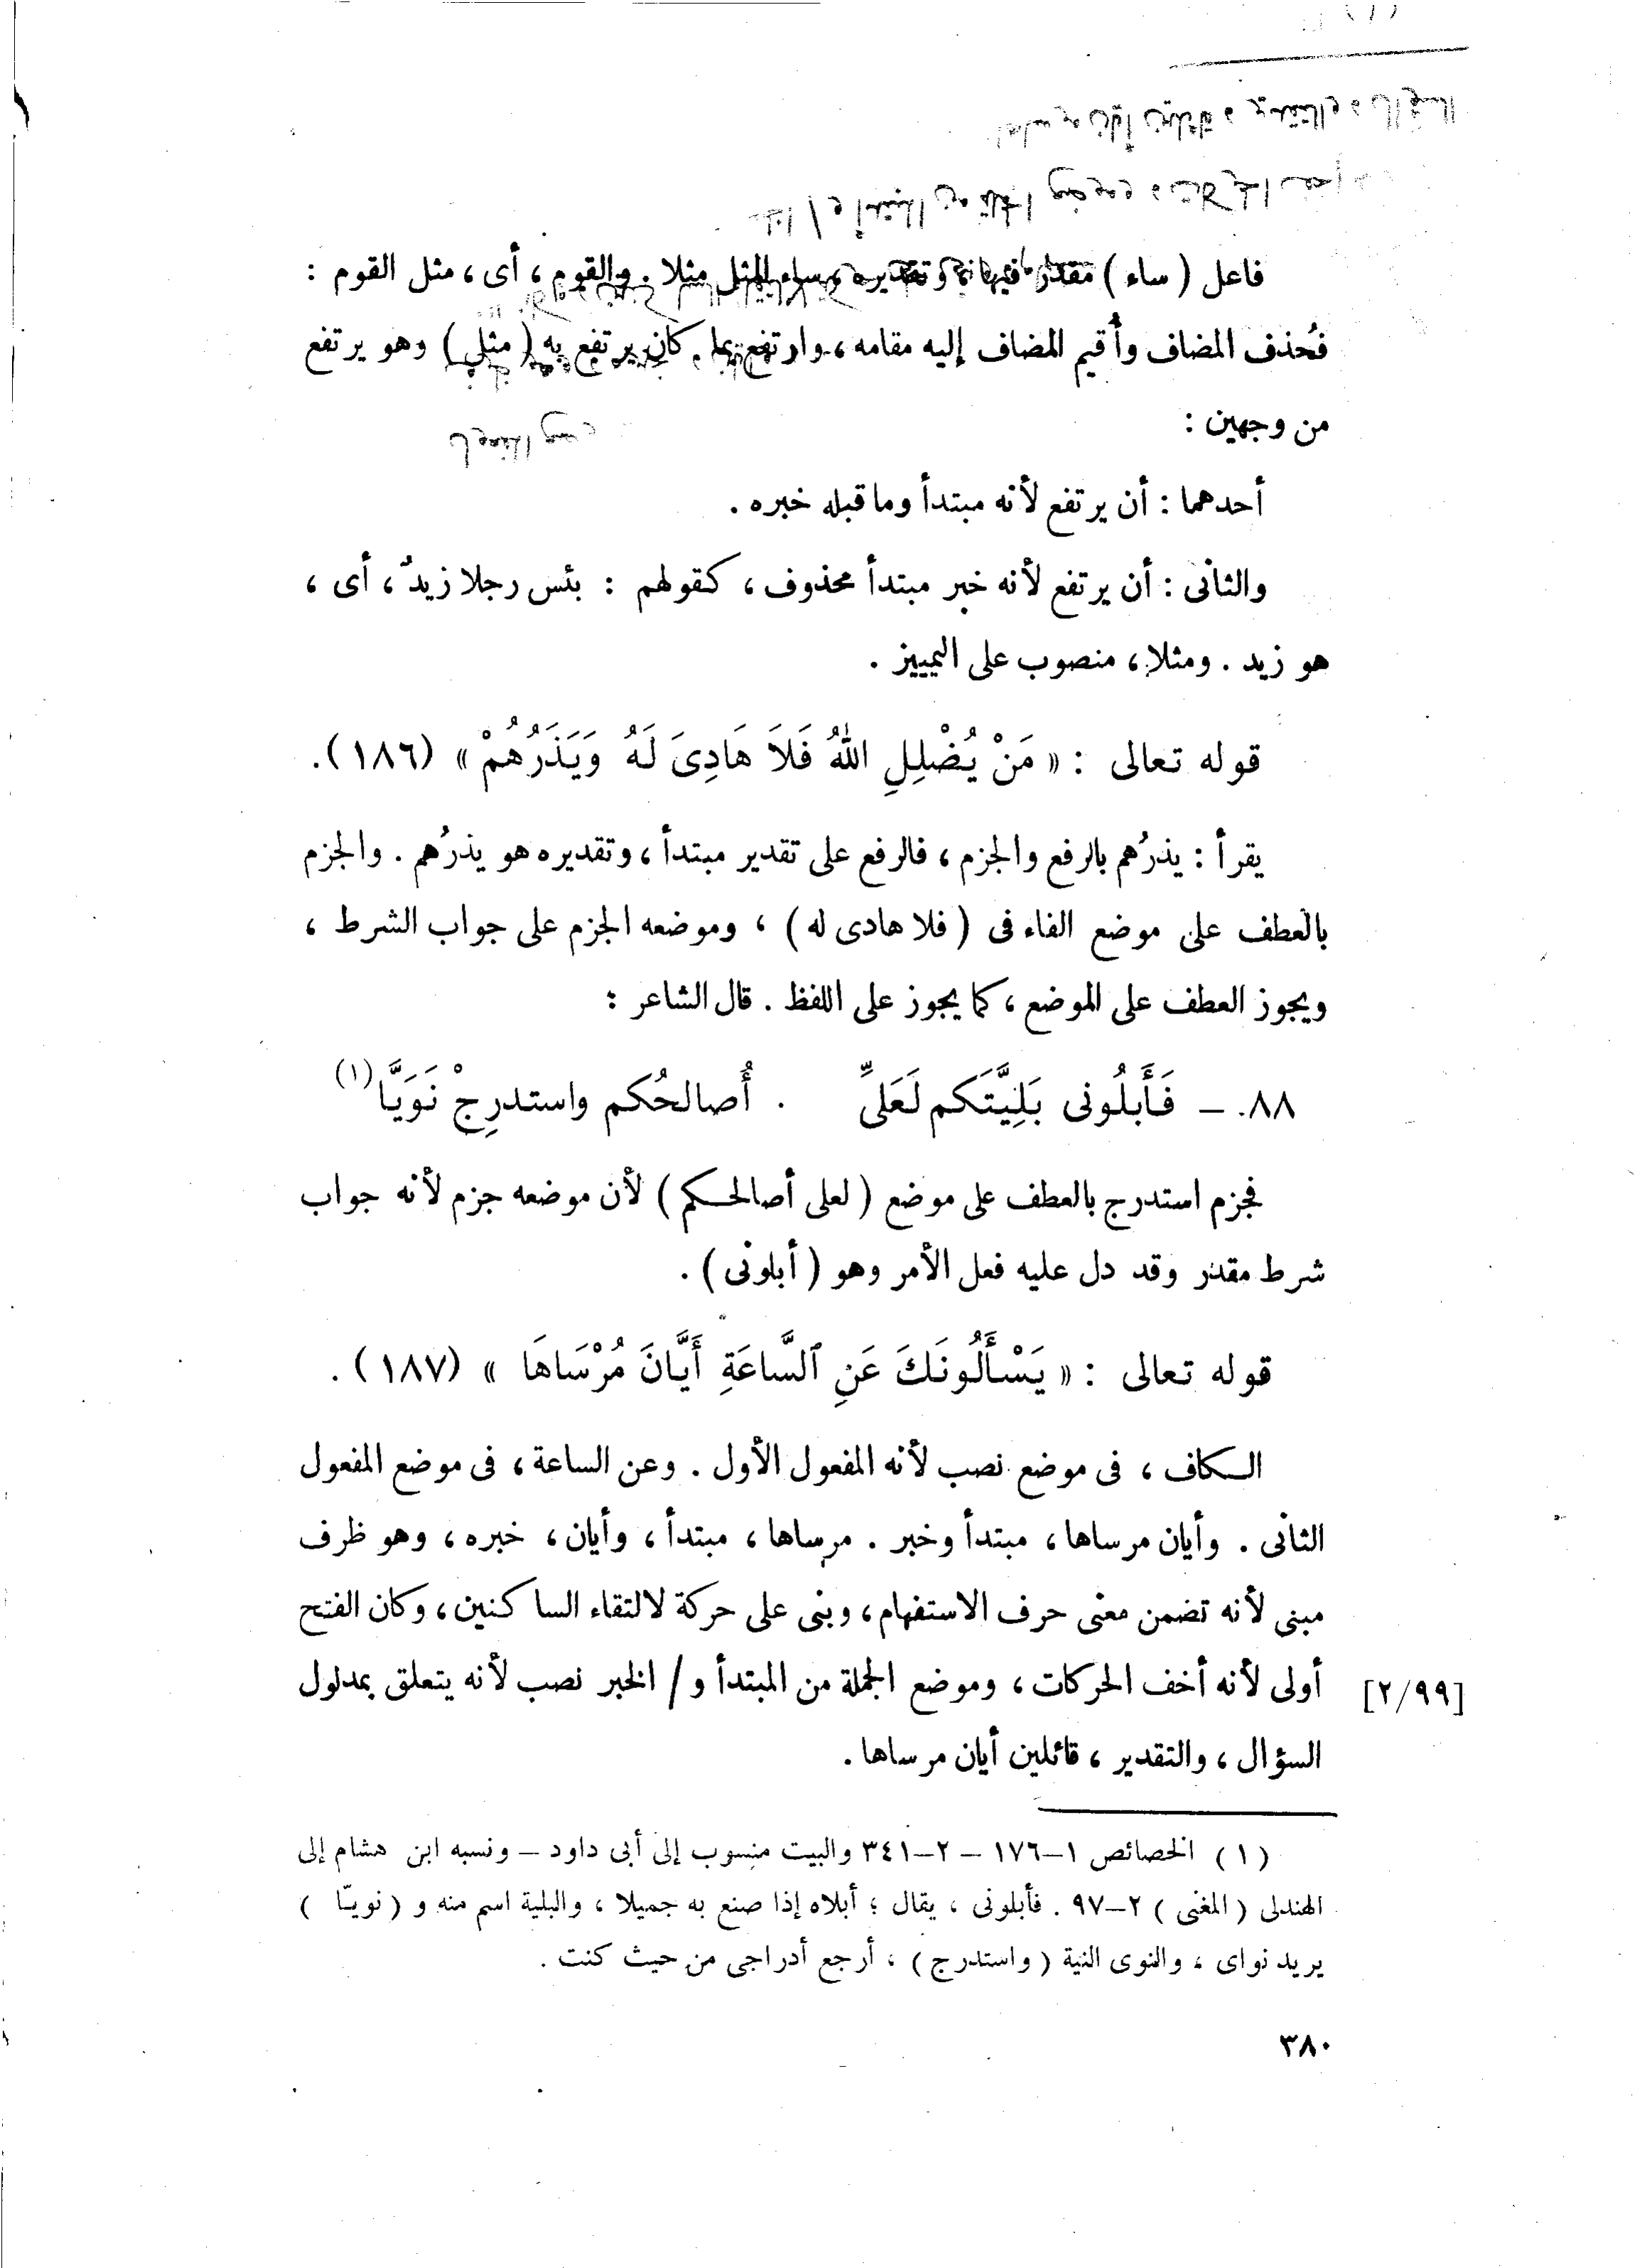 فاعل ( ساء ) مقدر فيها ، وتقديره ، ساء المثل مثلا . والقوم ، أى ، مثل القوم :
فحُذف المضاف وأُقيم المضاف إليه مقامه ، وارتفع بما كان يرتفع به ( مثل ) وهو يرتفع
من وجهين :
أحدهما : أن يرتفع لأنه مبتدأ وما قبله خبره .
والثانى : أن يرتفع لأنه خبر مبتدأ محذوف ، كقولهم : بئس رجلا زيدٌ ، أى ،
هو زيد . ومثلا ، منصوب على التمييز .
قوله تعالى : « مَنْ يُضْلِلِ اللهُ فَلاَ هَادِىَ لَهُ وَيَذَرُهُمْ » (١٨٦) .
يقرأ : يذرُهم بالرفع والجزم ، فالرفع على تقدير مبتدأ ، وتقديره هو يذرُهم . والجزم
بالعطف على موضع الفاء فى ( فلا هادى له ) ، وموضعه الجزم على جواب الشرط ،
ويجوز العطف على الموضع ، كما يجوز على اللفظ . قال الشاعر :
٨٨ – فَأَبلُونى بَلِيَّتَكم لَعَلىِّ . أُصالحُكم واستدرِجْ نَوَيَّا (١)
فجزم استدرج بالعطف على موضع ( لعلى أصالحكم ) لأن موضعه جزم لأنه جواب
شرط مقدر وقد دل عليه فعل الأمر وهو ( أبلونى ) .
قوله تعالى : « يَسْأَلُونَكَ عَنِ ٱلسَّاعَةِ أَيَّانَ مُرْسَاهَا » (١٨٧) .
الكاف ، فى موضع نصب لأنه المفعول الأول . وعن الساعة ، فى موضع المفعول
الثانى . وأيان مرساها ، مبتدأ وخبر . مرساها ، مبتدأ ، وأيان ، خبره ، وهو ظرف
مبنى لأنه تضمن معنى حرف الاستفهام ، وبنى على حركة لالتقاء الساكنين ، وكان الفتح
أولى لأنه أخف الحركات ، وموضع الجملة من المبتدأ و / الخبر نصب لأنه يتعلق بمدلول [٢/٩٩]
السؤال ، والتقدير ، قائلين أيان مرساها .
(١) الخصائص ١–١٧٦ – ٢–٣٤١ والبيت منسوب إلى أبى داود – ونسبه ابن هشام إلى
الهندلى ( المغنى ) ٢–٩٧ . فأبلونى ، يقال : أبلاه إذا صنع به جميلا ، والبلية اسم منه و ( نويّا )
يريد نواى ، والنوى النية ( واستدرج ) ، أرجع أدراجى من حيث كنت .
٣٨٠